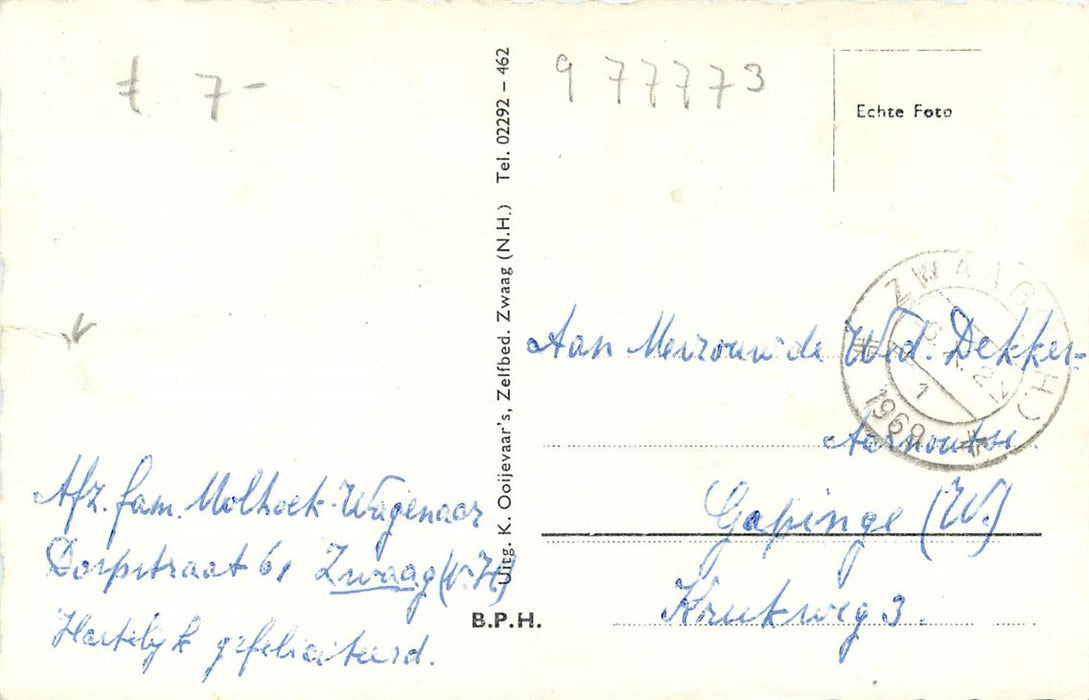 f 7-
977773
Echte Foto
Uitg. K. Ooijevaar's, Zelfbed. Zwaag (N.H.) Tel. 02292 – 462
ZWAAG (
1969
Aan Mevrouw de Wed. Dekker-
Aernoutse.
Gapinge (W.)
Krukweg 3.
Afz. fam. Molhoek-Wagenaar
Dorpstraat 61 Zwaag (N.H.)
Hartelijk gefeliciteerd.
B.P.H.